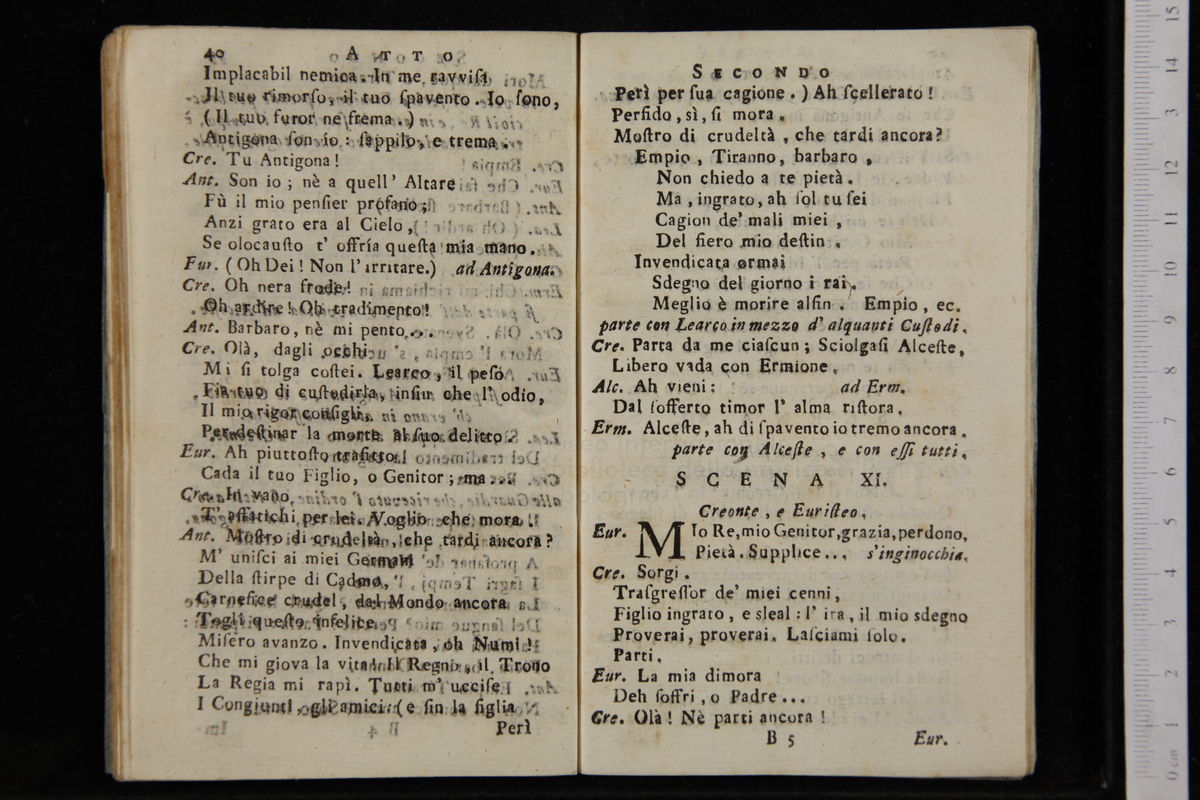 40 ATTO
Implacabil nemica. In me ravviſa
Il tuo rimorſo, il tuo ſpavento. Io ſono,
(Il tuo furor ne frema.)
Antigona ſon io: ſappilo, e trema.
Cre. Tu Antigona!
Ant. Son io; nè a quell' Altare
Fù il mio penſier profano;
Anzi grato era al Cielo,
Se olocauſto t' offría queſta mia mano.
Eur. (Oh Dei! Non l' irritare.) ad Antigona.
Cre. Oh nera frode!
Oh ardire! Oh tradimento!
Ant. Barbaro, nè mi pento...
Cre. Olà, dagli occhi
Mi ſi tolga coſtei. Learco, il peſo
Fia tuo di cuſtodirla, inſin che l' odio,
Il mio rigor conſigli,
Per deſtinar la morte al ſuo delitto.
Eur. Ah piuttoſto trafitto
Cada il tuo Figlio, o Genitor; ma...
Cre. In vano
T' affatichi per lei. Voglio che mora.
Ant. Moſtro di crudeltà, che tardi ancora?
M' uniſci ai miei Germani
Della ſtirpe di Cadmo,
Carnefice crudel, dal Mondo ancora
Togli queſto infelice
Miſero avanzo. Invendicata, oh Numi!
Che mi giova la vita? Il Regno, il Trono
La Regia mi rapì. Tutti m' ucciſe
I Congiunti, gli amici: (e ſin la figlia
Perì
SECONDO
Perì per ſua cagione.) Ah ſcellerato!
Perfido, sì, ſi mora.
Moſtro di crudeltà, che tardi ancora?
Empio, Tiranno, barbaro,
Non chiedo a te pietà.
Ma, ingrato, ah ſol tu ſei
Cagion de' mali miei,
Del fiero mio deſtin.
Invendicata ormai
Sdegno del giorno i rai,
Meglio è morire alfin. Empio, ec.
parte con Learco in mezzo d' alquanti Cuſtodi.
Cre. Parta da me ciaſcun; Sciolgaſi Alceſte,
Libero vada con Ermione.
Alc. Ah vieni: ad Erm.
Dal ſofferto timor l' alma riſtora.
Erm. Alceſte, ah di ſpavento io tremo ancora.
parte con Alceſte, e con eſſi tutti.
SCENA XI.
Creonte, e Euriſteo.
Eur. MIo Re, mio Genitor, grazia, perdono,
Pietà. Supplice... s'inginocchia.
Cre. Sorgi.
Traſgreſſor de' miei cenni,
Figlio ingrato, e sleal: l' ira, il mio sdegno
Proverai, proverai. Laſciami ſolo.
Parti.
Eur. La mia dimora
Deh ſoffri, o Padre...
Cre. Olà! Nè parti ancora!
B 5 Eur.